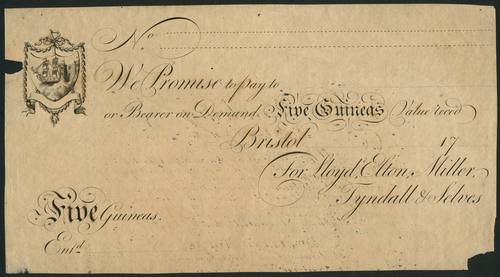 No
We Promise to pay to
or Bearer on Demand Five Guineas Value reced
Bristol 17
For Lloyd, Elton, Miller,
Tyndall & Selves
Five Guineas.
Entd.